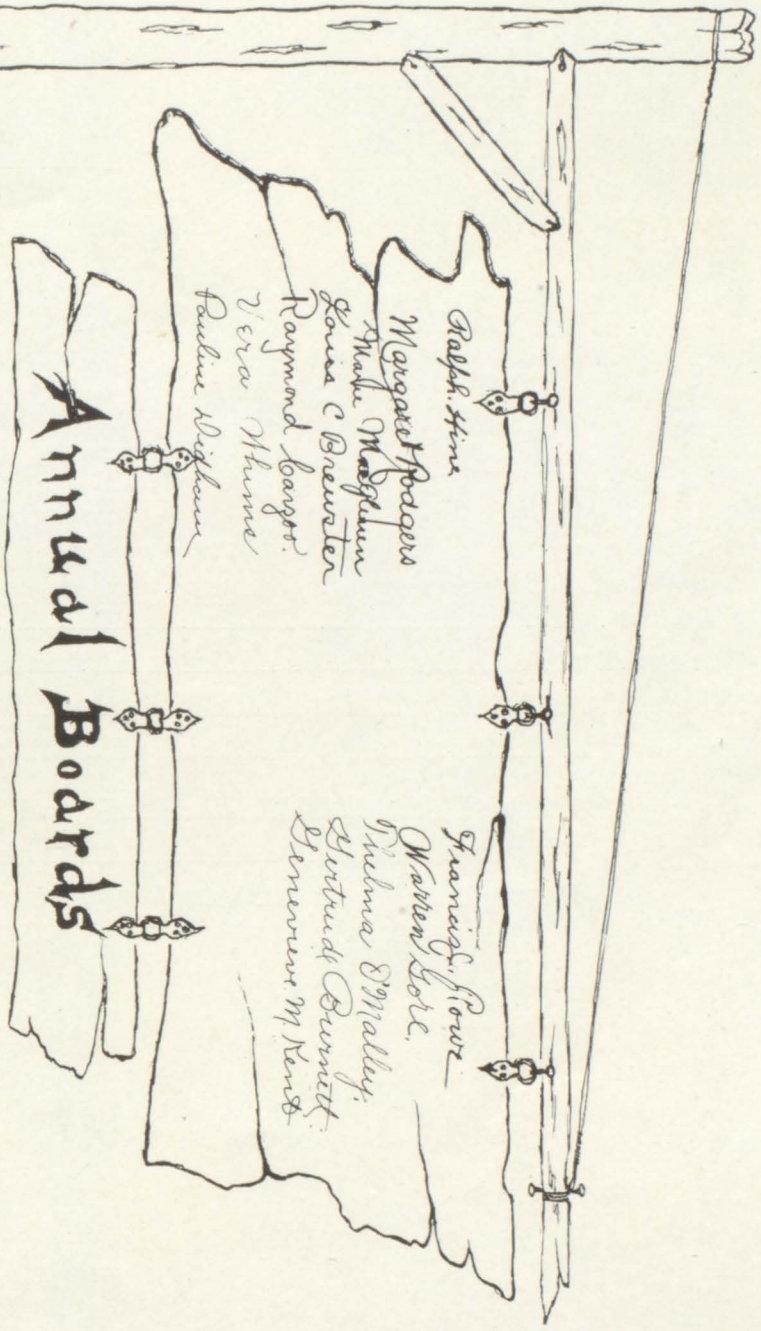 Ralph Hine
Margaret Rodgers
Marie
Louisa C Brewster
Raymond
Vera Whims
Pauline
Francis J. Rowe
Warren Gore.
Thelma O'Malley.
Gertrude Burnett.
Genevieve M. Kent
Annual Boards